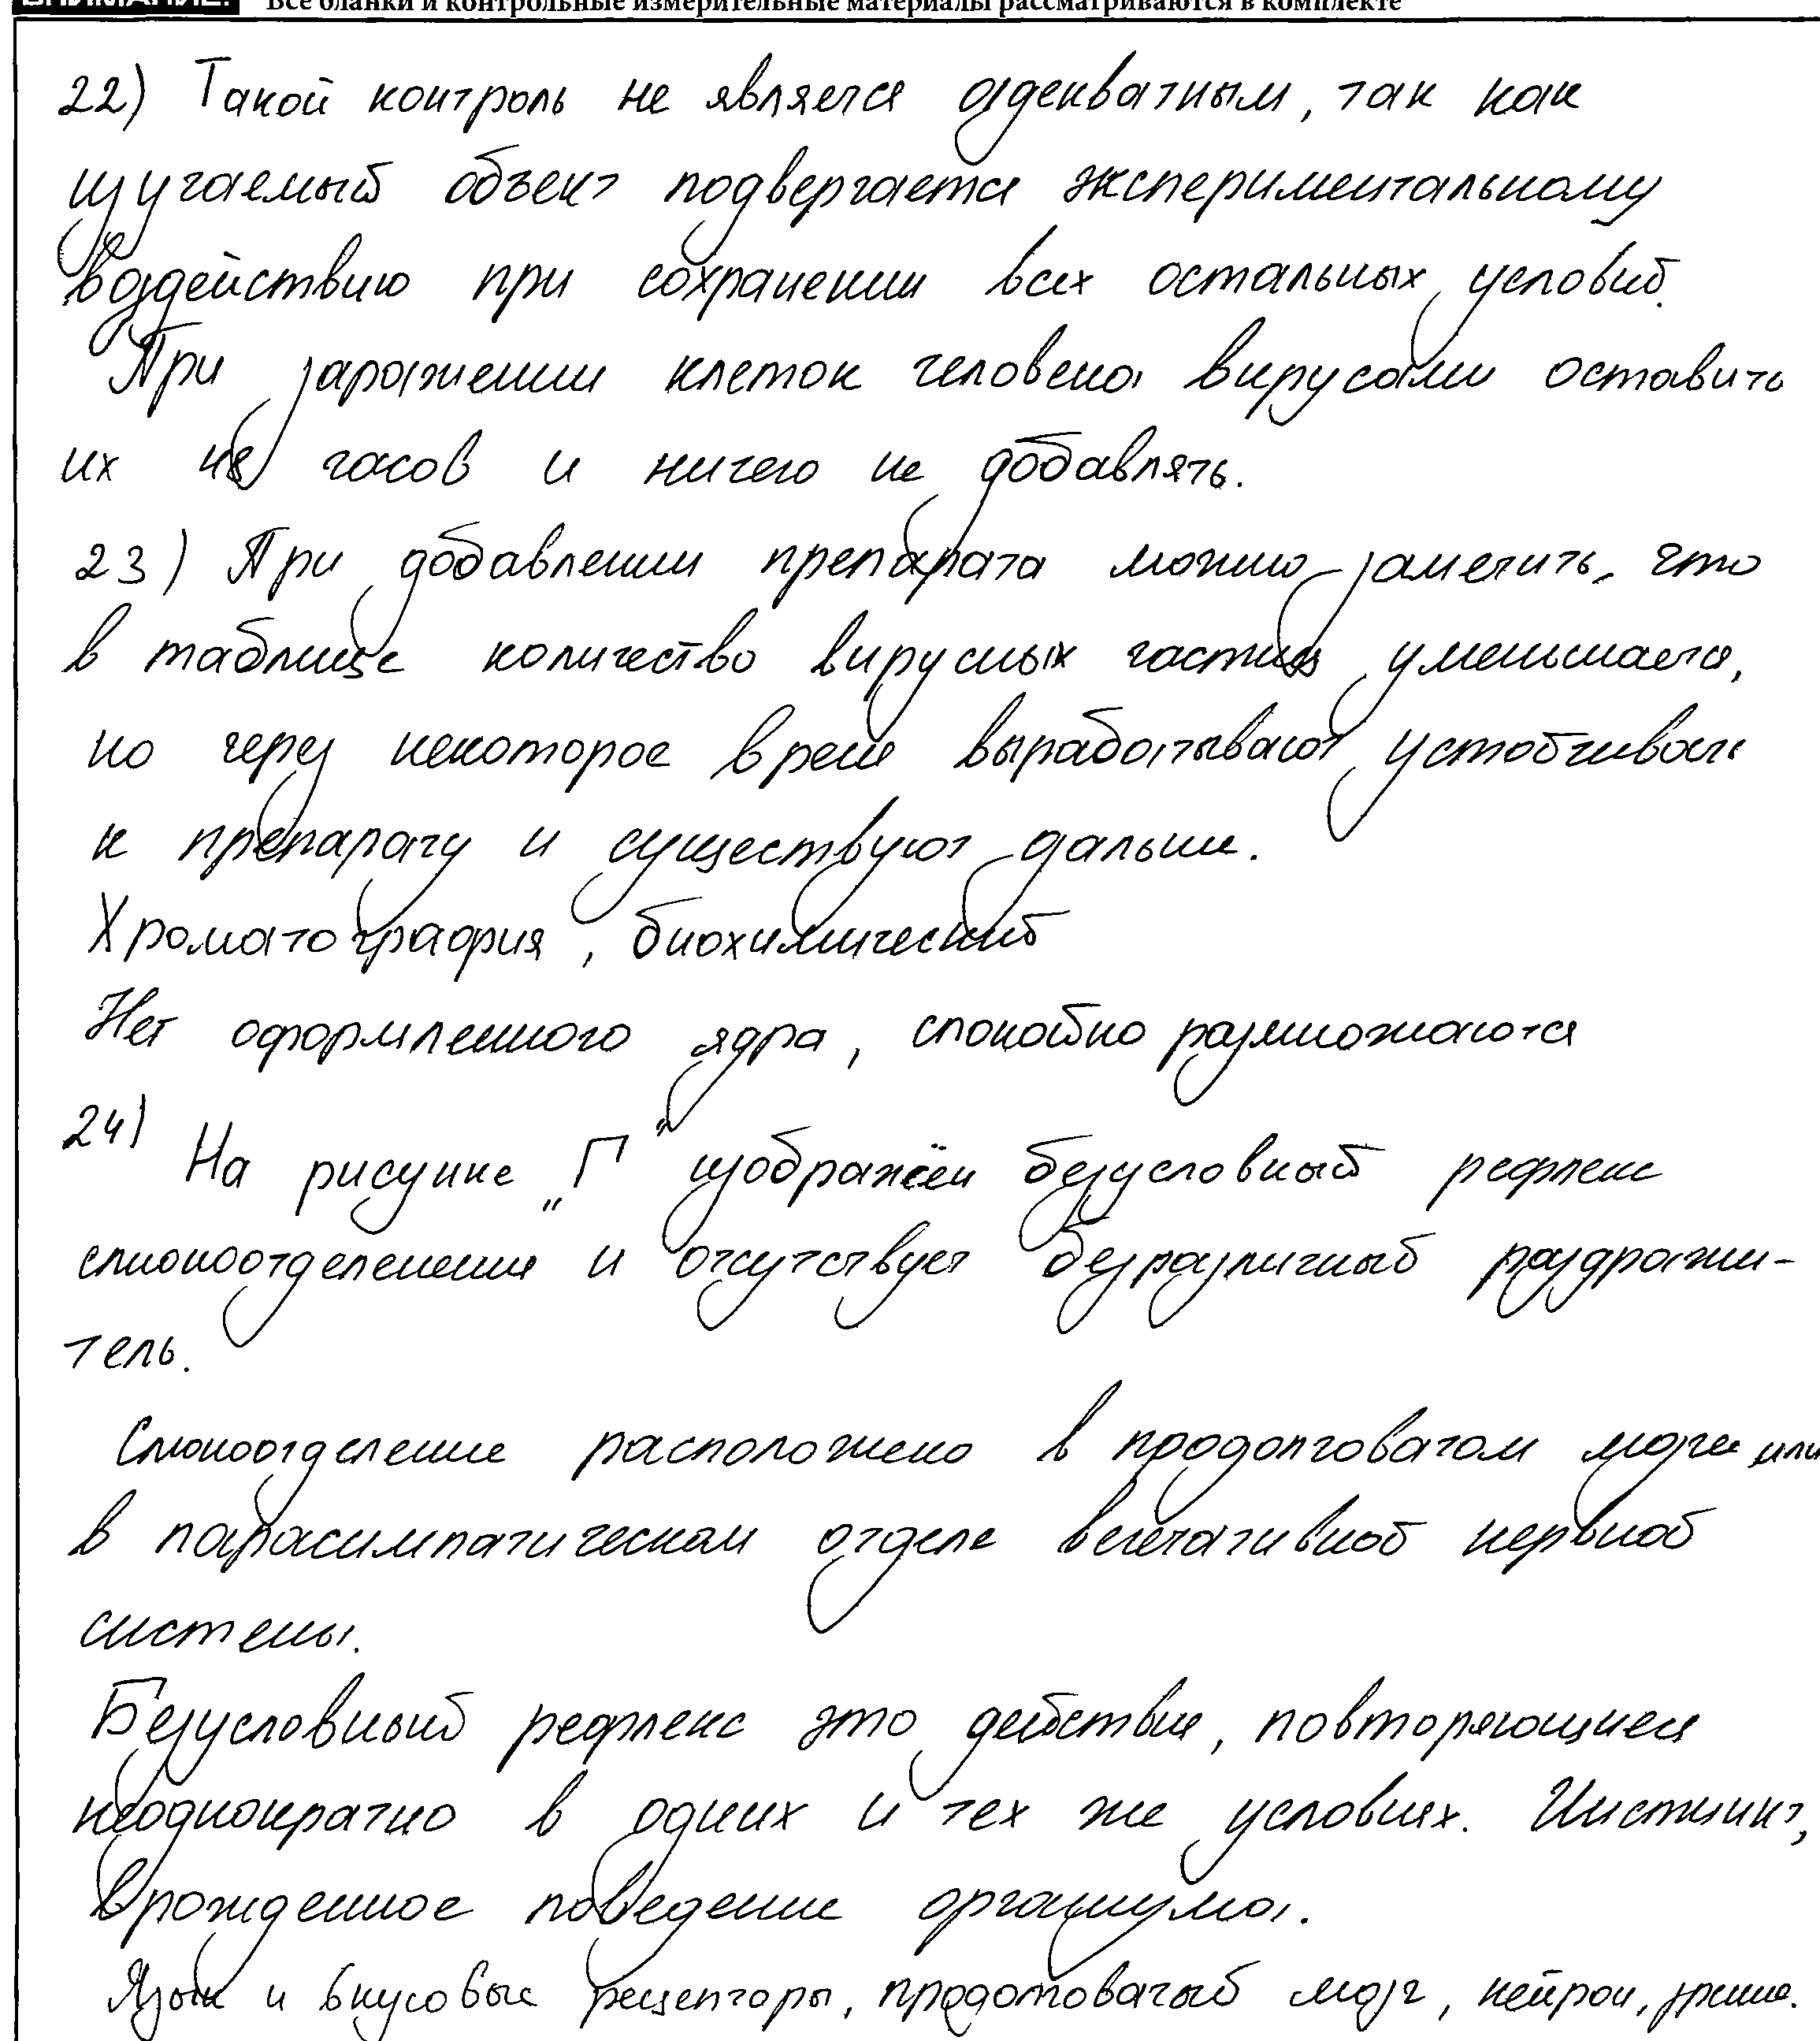 ВНИМАНИЕ! Все бланки и контрольные измерительные материалы рассматриваются в комплекте
22) Такой контроль не является адекватным, так как
изучаемый объект подвергается экспериментальному
воздействию при сохранении всех остальных условий.
При заражении клеток человека вирусами оставить
их на часов и ничего не добавлять.
23) При добавлении препарата можно заметить, что
в таблице количество вирусных частиц уменьшается,
но через некоторое время вырабатывают устойчивость
к препарату и существуют дальше.
Хроматография, биохимический
Нет оформленного ядра, спокойно размножаются
24)
На рисунке „Г" изображён безусловный рефлекс
слюноотделения и отсутствует безразличный раздражи-
тель.
Слюноотделение расположено в продолговатом мозге или
в парасимпатическом отделе вегетативной нервной
системы.
Безусловный рефлекс это действия, повторяющиеся
неоднократно в одних и тех же условиях. Инстинкт,
врожденное поведение организма.
Язык и вкусовые рецепторы, продолговатый мозг, нейрон, зрение.